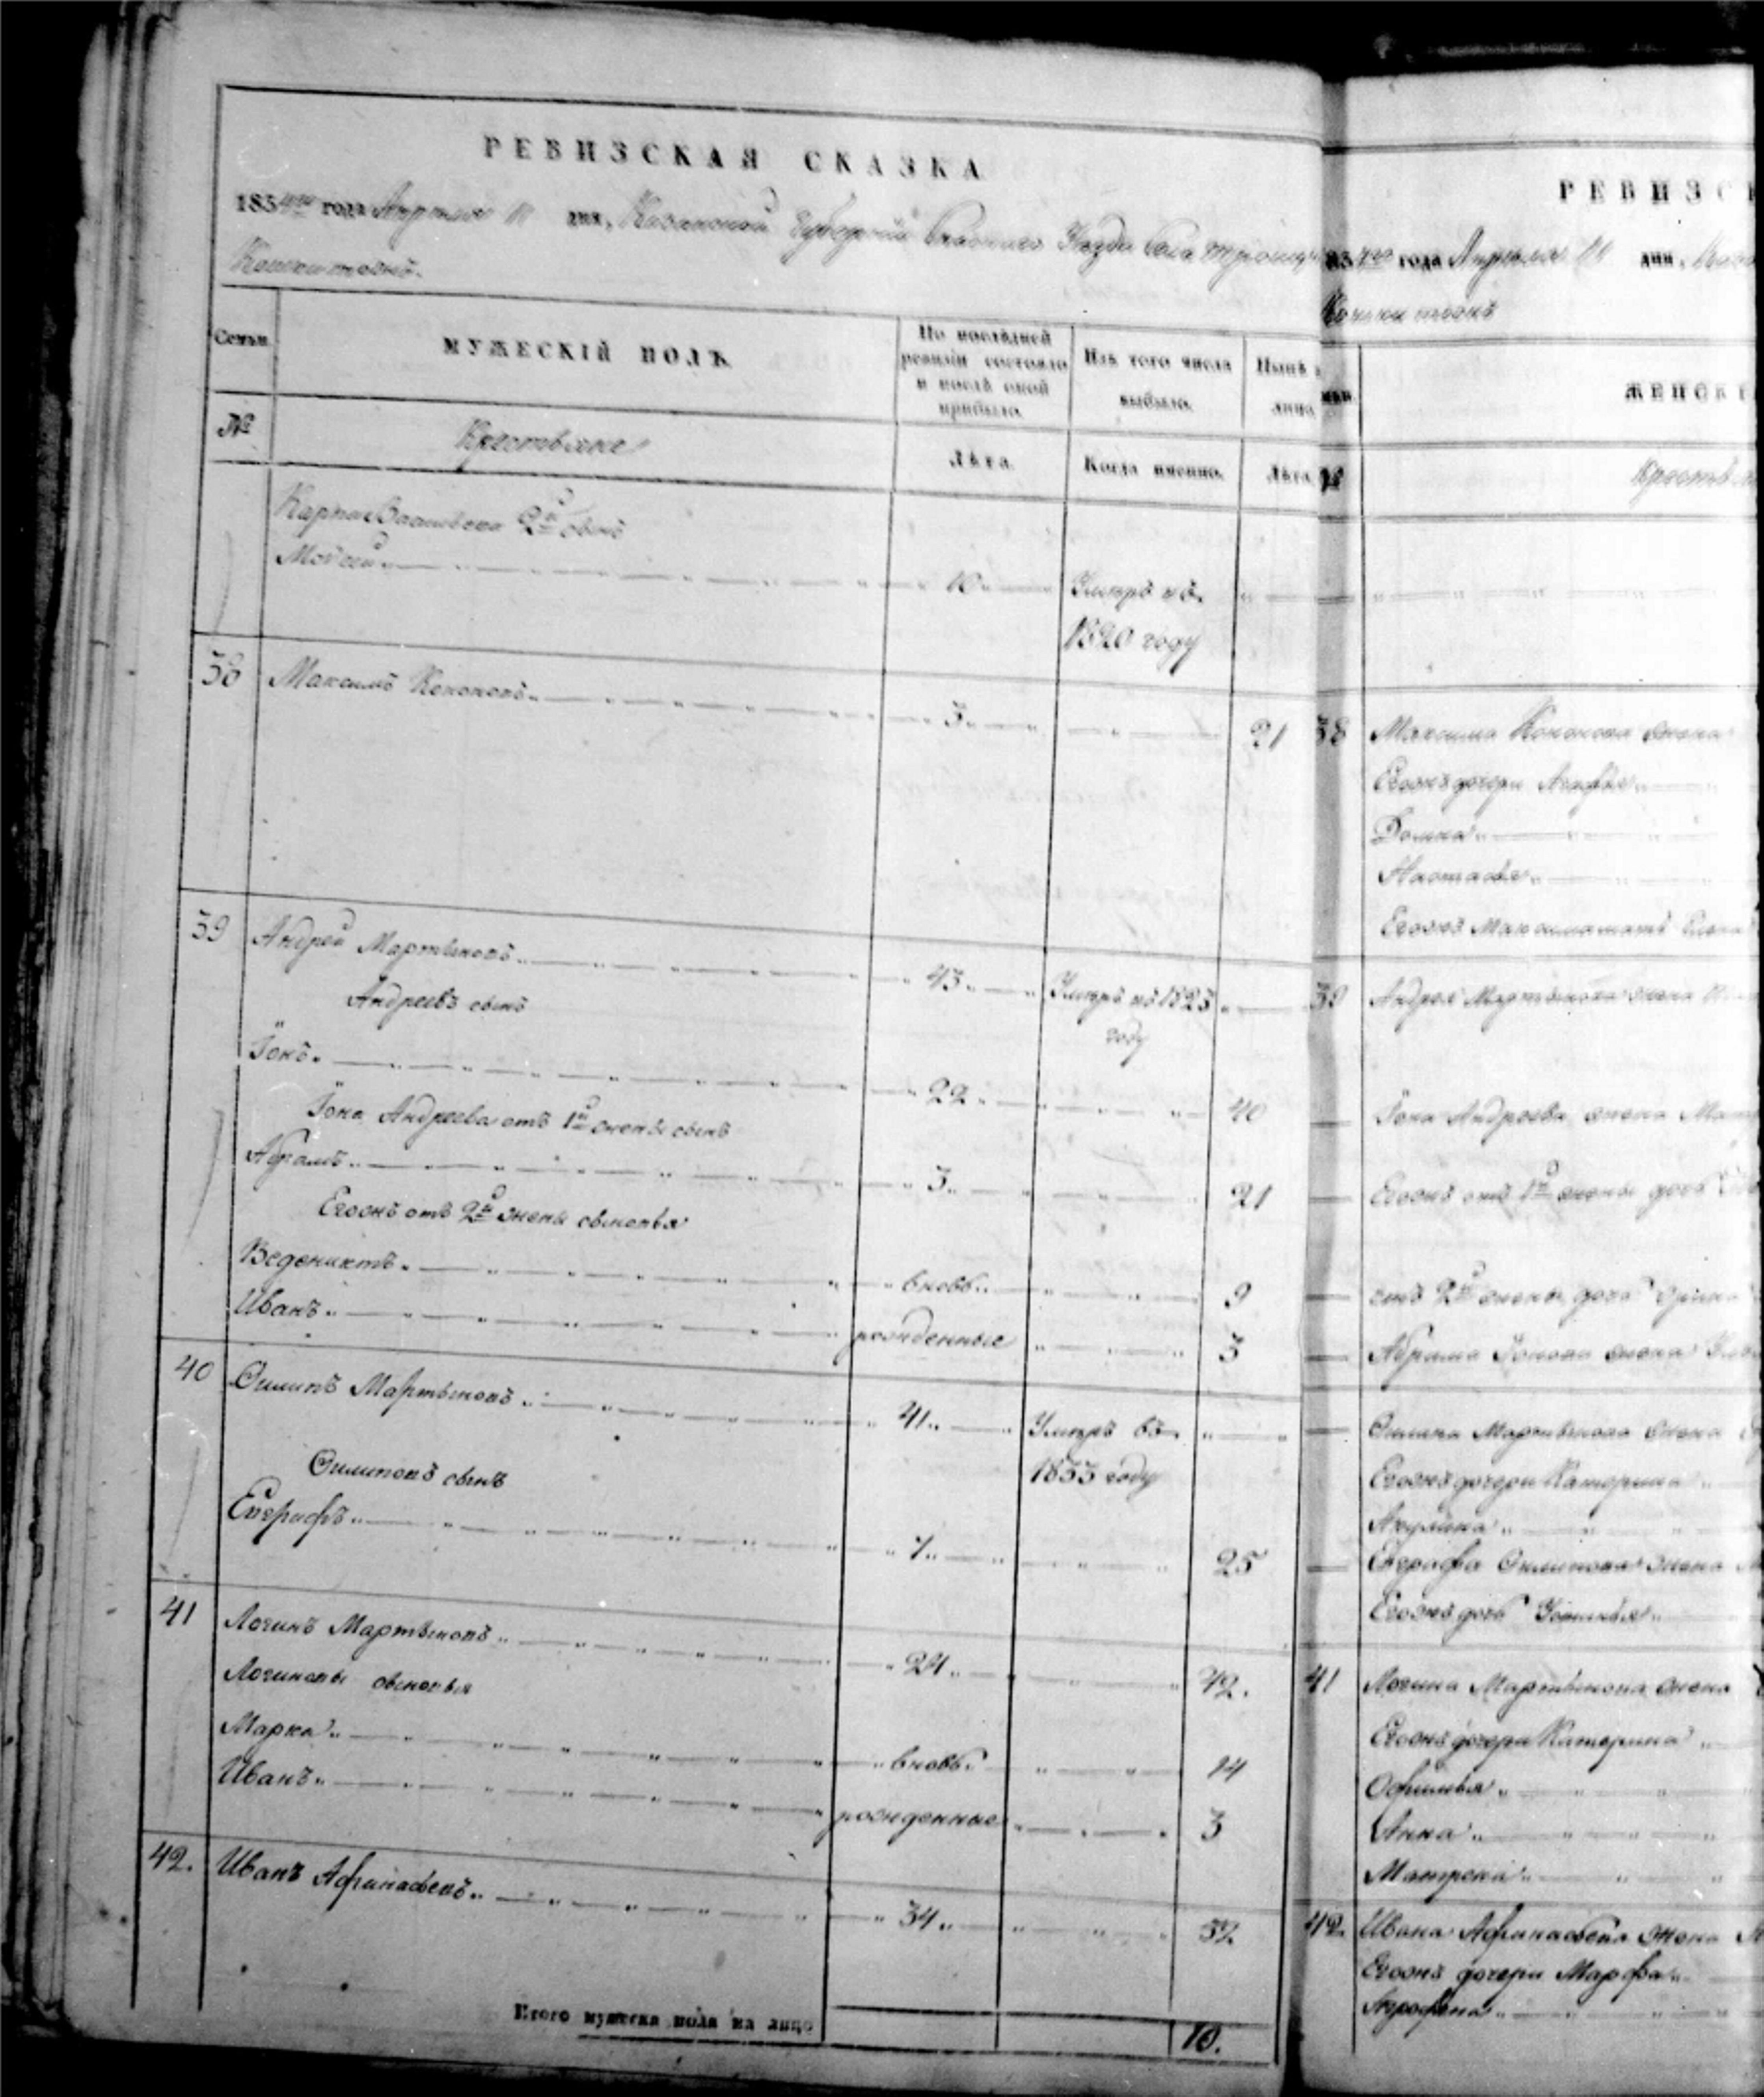 РЕВИЗСКАЯ СКАЗКА
1834го года Апреля дня, Казанской Губернiи Спасского Уезда Села Троицк
МУЖЕСКІЙ ПОЛЪ.
По послѣдней ревизіи состояло и послѣ оной прибыло.
Изъ того числа выбыло.
Нынѣ на лицо
Семьи
№
Крестьяне
Лѣта.
Когда именно.
Лѣта.
Карпа Васильева 2й сынъ
Мойсей 10 Умеръ въ
1820 году
38 Максимъ Кононовъ 3 21
39 Андрей Мартыновъ 43 Умеръ въ 1823
году
Андреевъ сынъ
Іонъ 22 40
Іона Андреева отъ 1й жены сынъ
Абрамъ 3 21
Егожъ отъ 2й жены сыновья
Веденихтъ вновь 9
Иванъ рожденные 3
40 Филипъ Мартыновъ 41 Умеръ въ
1833 году
Филиповъ сынъ
Евграфъ 7 25
41 Логинъ Мартыновъ 24 42.
Логиновы сыновья
Марка вновь 14
Иванъ рожденные 3
42. Иванъ Афанасьевъ 34
Итого мужеска пола на лицо 10.
РЕВИЗС
года Апреля дня,
ЖЕНСК
Крестья
38 Максима Кононова жена
Егожъ дочери Агафья
Домна
Настасья
Егожъ Максима мать
39 Андрея Мартынова жена
Іона Андреева жена
Егожъ отъ 1й жены дочь
отъ 2й жены дочь
Абрама Іонова жена
Филипа Мартынова жена
Егожъ дочери Катерина
Акулина
Евграфа Филипова жена
Егожъ дочь Устинья
41 Логина Мартынова жена
Егожъ дочери Катерина
Офимья
Анна
Матрена
42. Ивана Афанасьева жена
Егожъ дочери Марфа